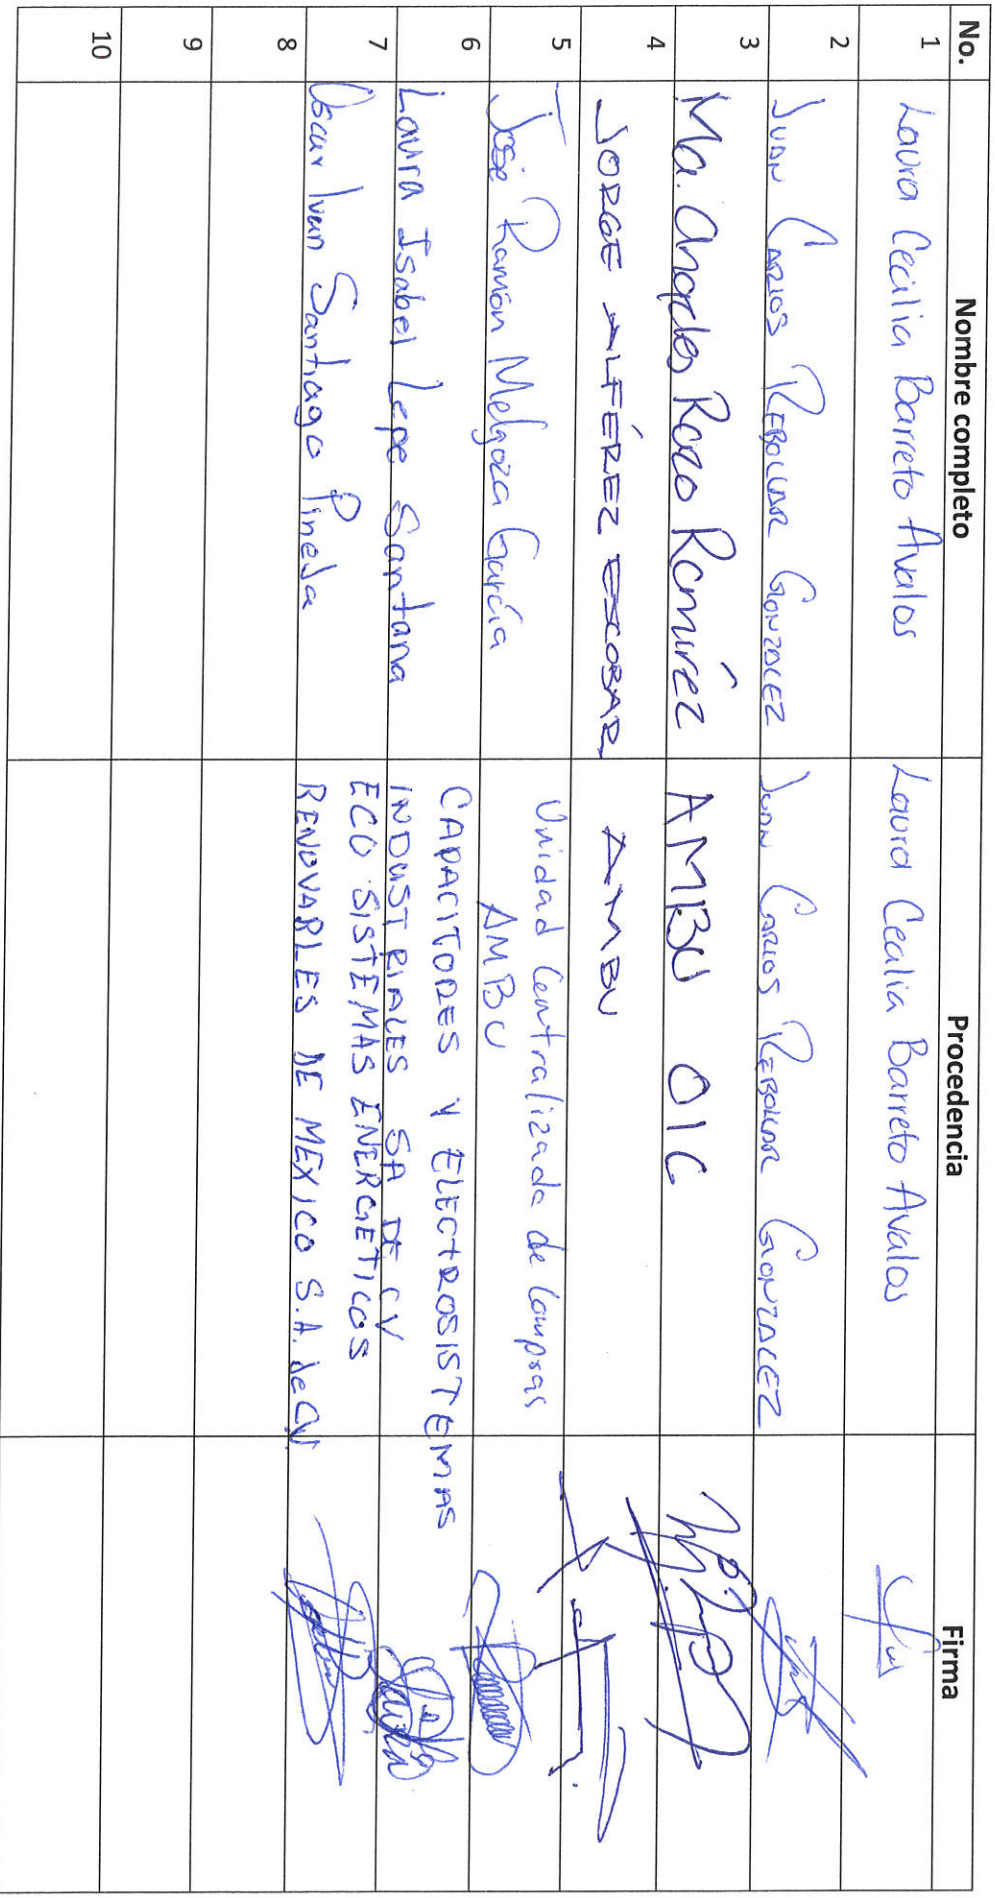 No. Nombre completo Procedencia Firma
1 Laura Cecilia Barreto Avalos Laura Cecilia Barreto Avalos
2 JUAN CARLOS REBOLLAR GONZALEZ JUAN CARLOS REBOLLAR GONZALEZ
3 Ma. Razo Ramírez AMBU OIC
4 JORGE ALFÉREZ ESCOBAR AMBU
5 José Ramón Melgoza García Unidad Centralizada de Compras
AMBU
6 Laura Isabel Lepe Santana CAPACITORES Y ELECTROSISTEMAS
INDUSTRIALES SA DE CV
7 Oscar Ivan Santiago Pineda ECO SISTEMAS ENERGETICOS
RENOVABLES DE MEXICO S.A. de CV
8
9
10